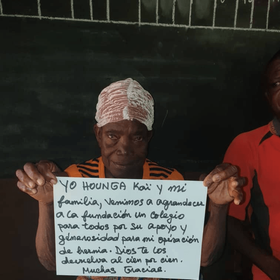 YO HOUNGA Kaï Y mi
familia, venimos a agradecer
a la fundación un colegio
para todos por su apoyo y
generosidad para mi operación
de hernia. Dios te los
devuelva al cien por cien.
Muchas Gracias.